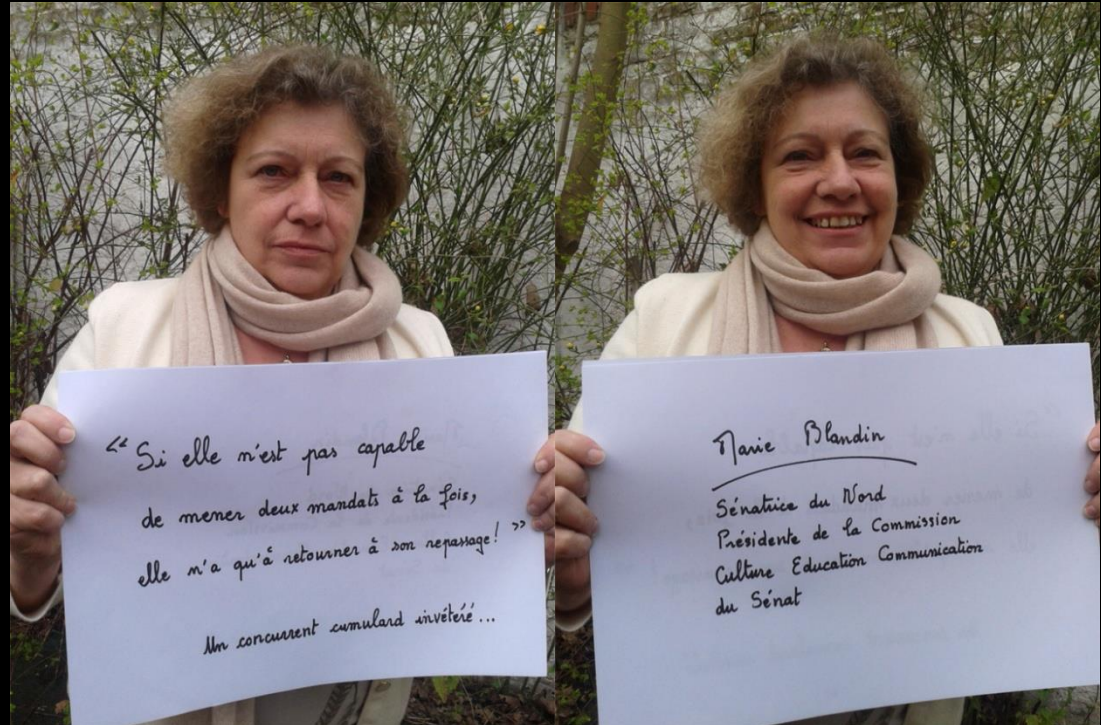 “Si elle n'est pas capable
de mener deux mandats à la fois,
elle n'a qu'à retourner à son repassage!”
Un concurrent cumulard invétéré...
Marie Blandin
Sénatrice du Nord
Présidente de la Commission
Culture Education Communication
du Sénat